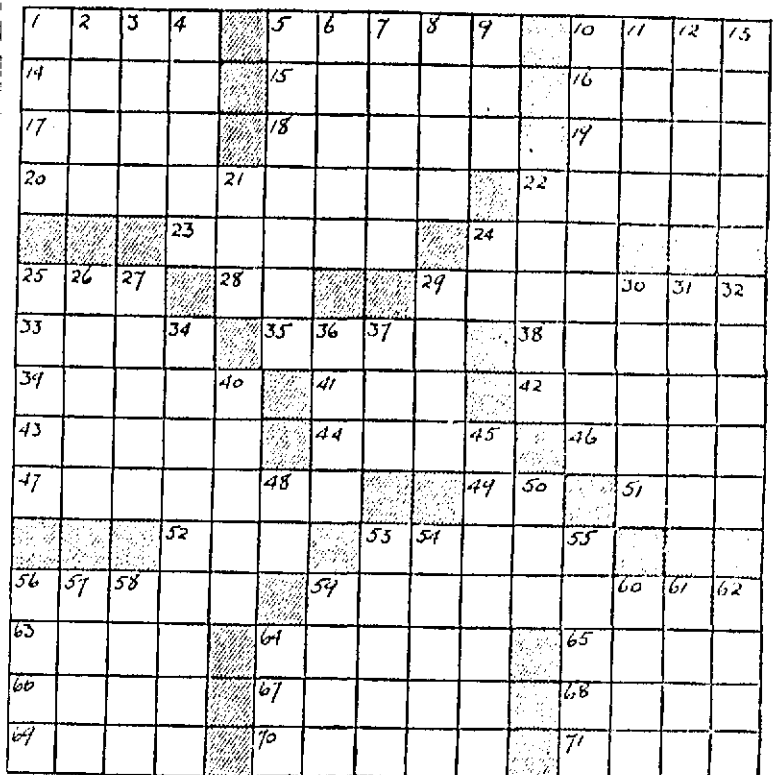 1 2 3 4 5 6 7 8 9 10 11 12 13
14 15 16
17 18 19
20 21 22
23 24
25 26 27 28 29 30 31 32
33 34 35 36 37 38
39 40 41 42
43 44 45 46
47 48 49 50 51
52 53 54 55
56 57 58 59 60 61 62
63 64 65
66 67 68
69 70 71